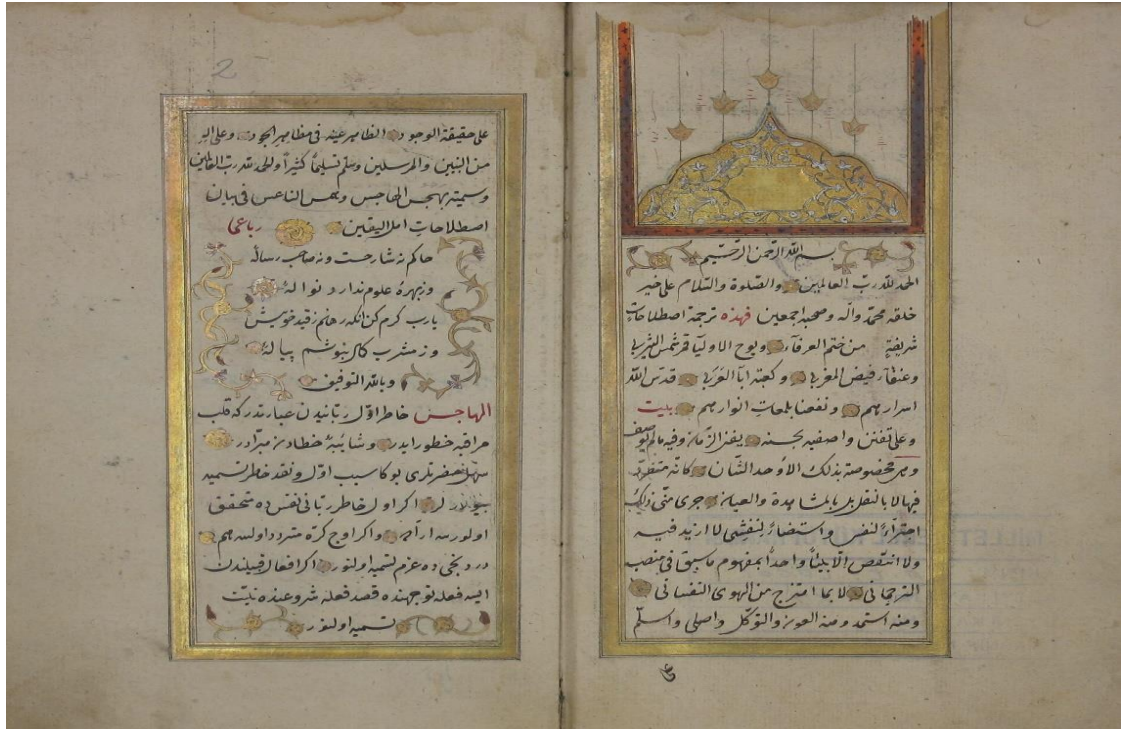 بسم الله الرحمن الرحيم
الحمد لله رب العالمين والصلوة والسلام على خير
خلقه محمد واله وصحبه اجمعين فهذه ترجمة اصطلاحات
شريفة من ختم العرفاء ويوح الاوليا قمر شمس
وعنقاء فيض المغربى وكعبة قدس الله
اسرارهم ونفعنا بلمحات انوارهم بيت
وعلى تفنن واصفيه بحسنه يفنى الزمان وفيه ما لم يوصف
وهى مخصوصة بذلك الاوحد الشان كانه متفرد
فيها لا بالنقل بل بالمشاهدة والعيان جرى منى ذلك
لنفس لنفسى لا ازيد فيه
ولا انتقص الا بيتا واحدا بمفهوم ما سبق فى منصب
الترجمانى لا بما امتزج من الهوى النفسانى
ومنه استمد ومنه العون والتوكل واصلى واسلم
على
2
على حقيقة الوجود الظاهر عينه فى مظاهر الجود وعلى اله
من النبيين والمرسلين وسلم تسليما كثيرا والحمد لله رب العالمين
وسميته بهجس الهاجس الناعس فى بيان
اصطلاحات اهل اليقين رباعى
حاكم نه شارحست ونه صاحب رساله
وز بهره علوم ندارد نواله
يارب كرم كن انكه رهنم ز قيد خويش
وز مشرب كمال بنوشم پياله
وبالله التوفيق
الهاجس خاطر اول ربانيدن عبارتدر كه قلب
مراقبه خطور ايدر وشائبۀ خطادن مبرادر
سهل حضرتلرى بوكا سبب اول ونقد خاطر تسميه
اكر اول خاطر ربانى نفس ده متحقق
اولورسه اراده واكر اوچ كره متردد اولسه هم
دردنجى ده عزم تسميه اولنور اكر افعال قبيلندن
ايسه فعله توجهنده قصد فعله شروعنده نيت
تسميه اولنور